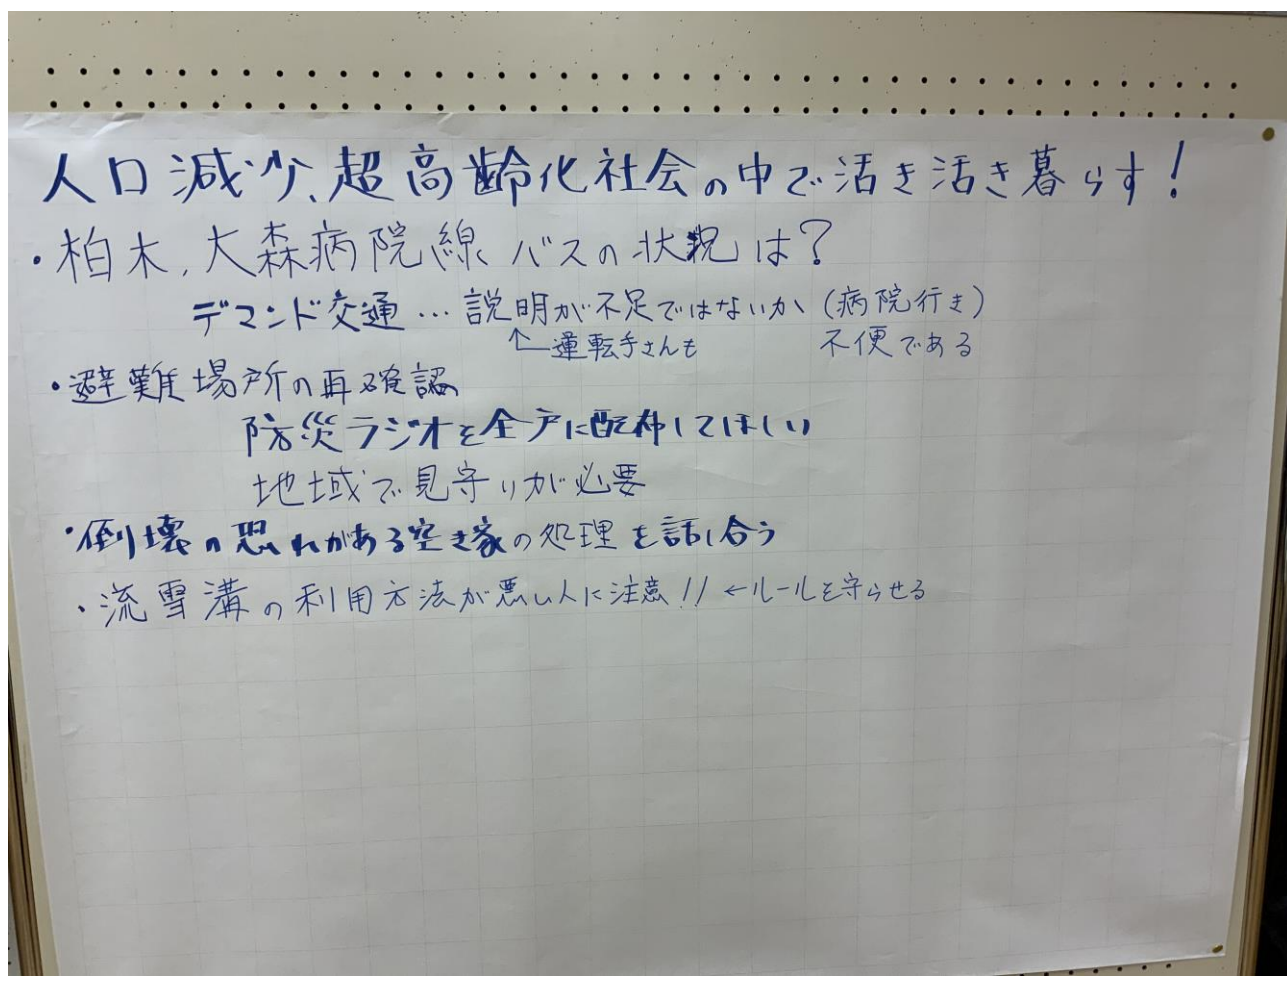 人口減少、超高齢化社会の中で活き活き暮らす！
・柏木、大森病院線 バスの状況は？
デマンド交通…説明が不足ではないか（病院行き）
↑運転手さんも 不便である
・避難場所の再確認
防災ラジオを全戸に配布してほしい
地域で見守りが必要
・倒壊の恐れがある空き家の処理を話し合う
・流雪溝の利用方法が悪い人に注意!! ←ルールを守らせる